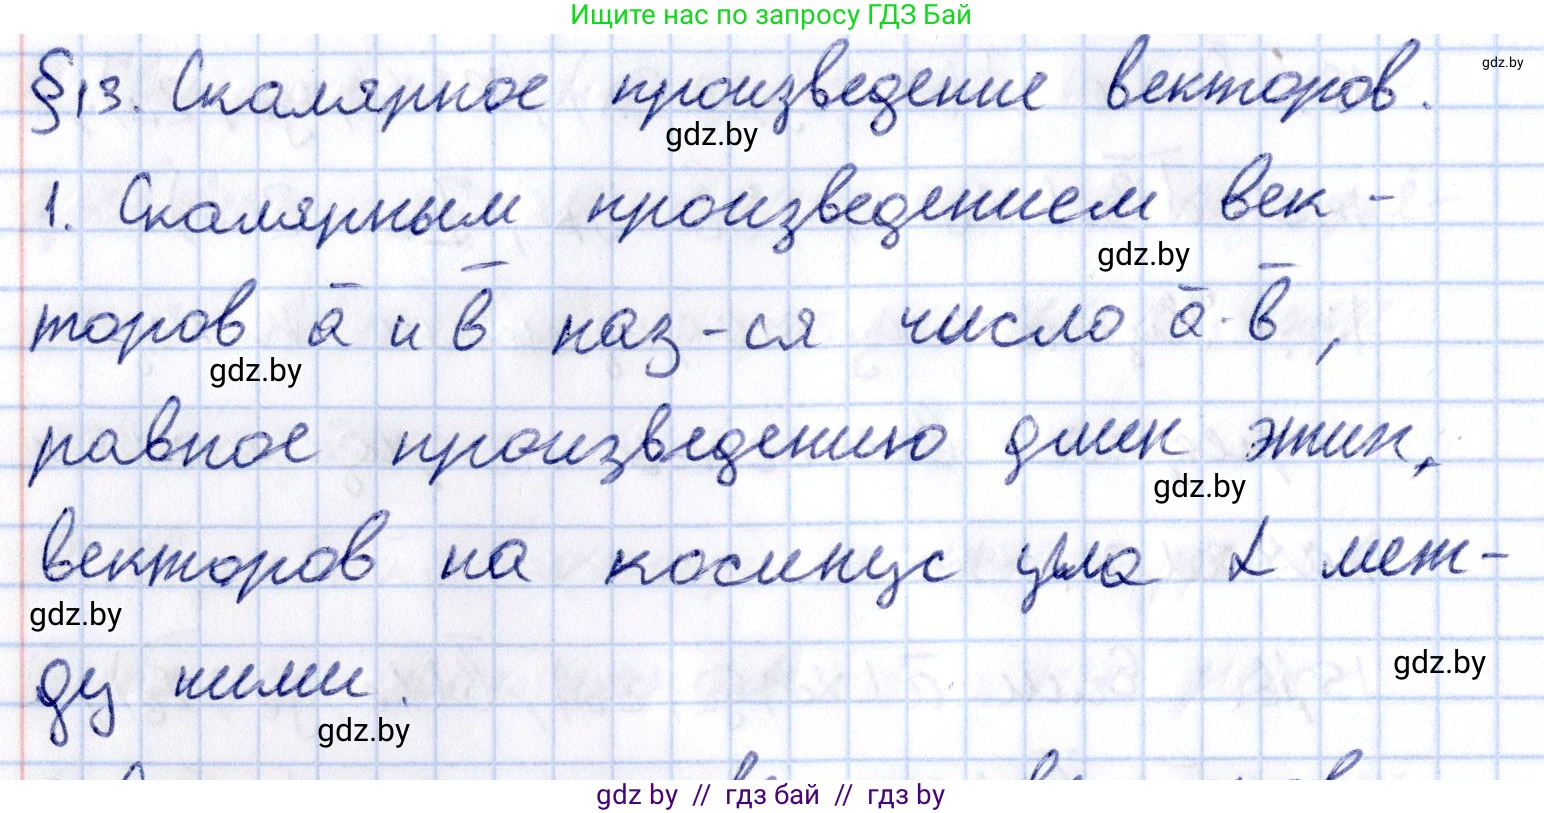 Ищите нас по запросу ГДЗ Бай
gdz.by
§13. Скалярное произведение векторов.
gdz.by
1. Скалярным произведением век-
gdz.by
торов a̅ и b̅ наз-ся число a̅·b̅,
gdz.by
равное произведению длин этих
gdz.by
векторов на косинус угла α меж-
gdz.by
ду ними.
gdz.by
gdz.by
gdz by // гдз бай // гдз by